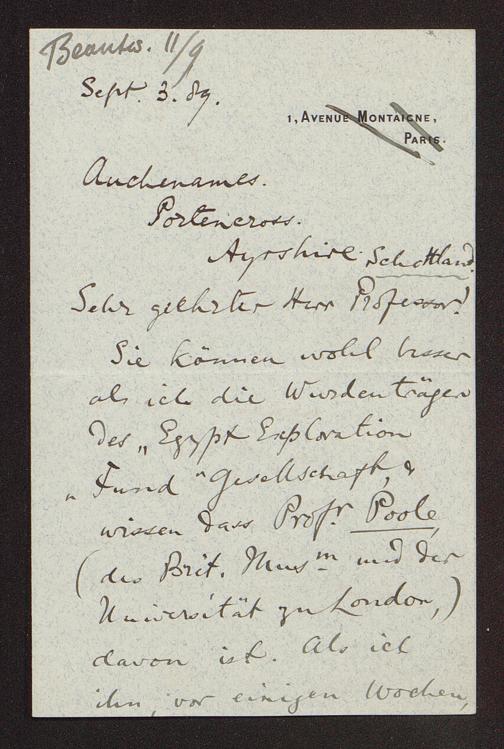 Beantw. 11/9
Sept. 3. 89.
1, AVENUE MONTAIGNE,
PARIS.
Auchenames.
Portencross.
Ayrshire. Schottland.
Sehr geehrter Herr Professor!
Sie können wohl besser
als ich die Wurdenträger
des „Egypt Exploration
„Fund" Gesellschaft, &
wissen dass Profr. Poole,
(des Brit. Musm und der
Universität zu London,)
davon ist. Als ich
ihn, vor einigen Wochen,